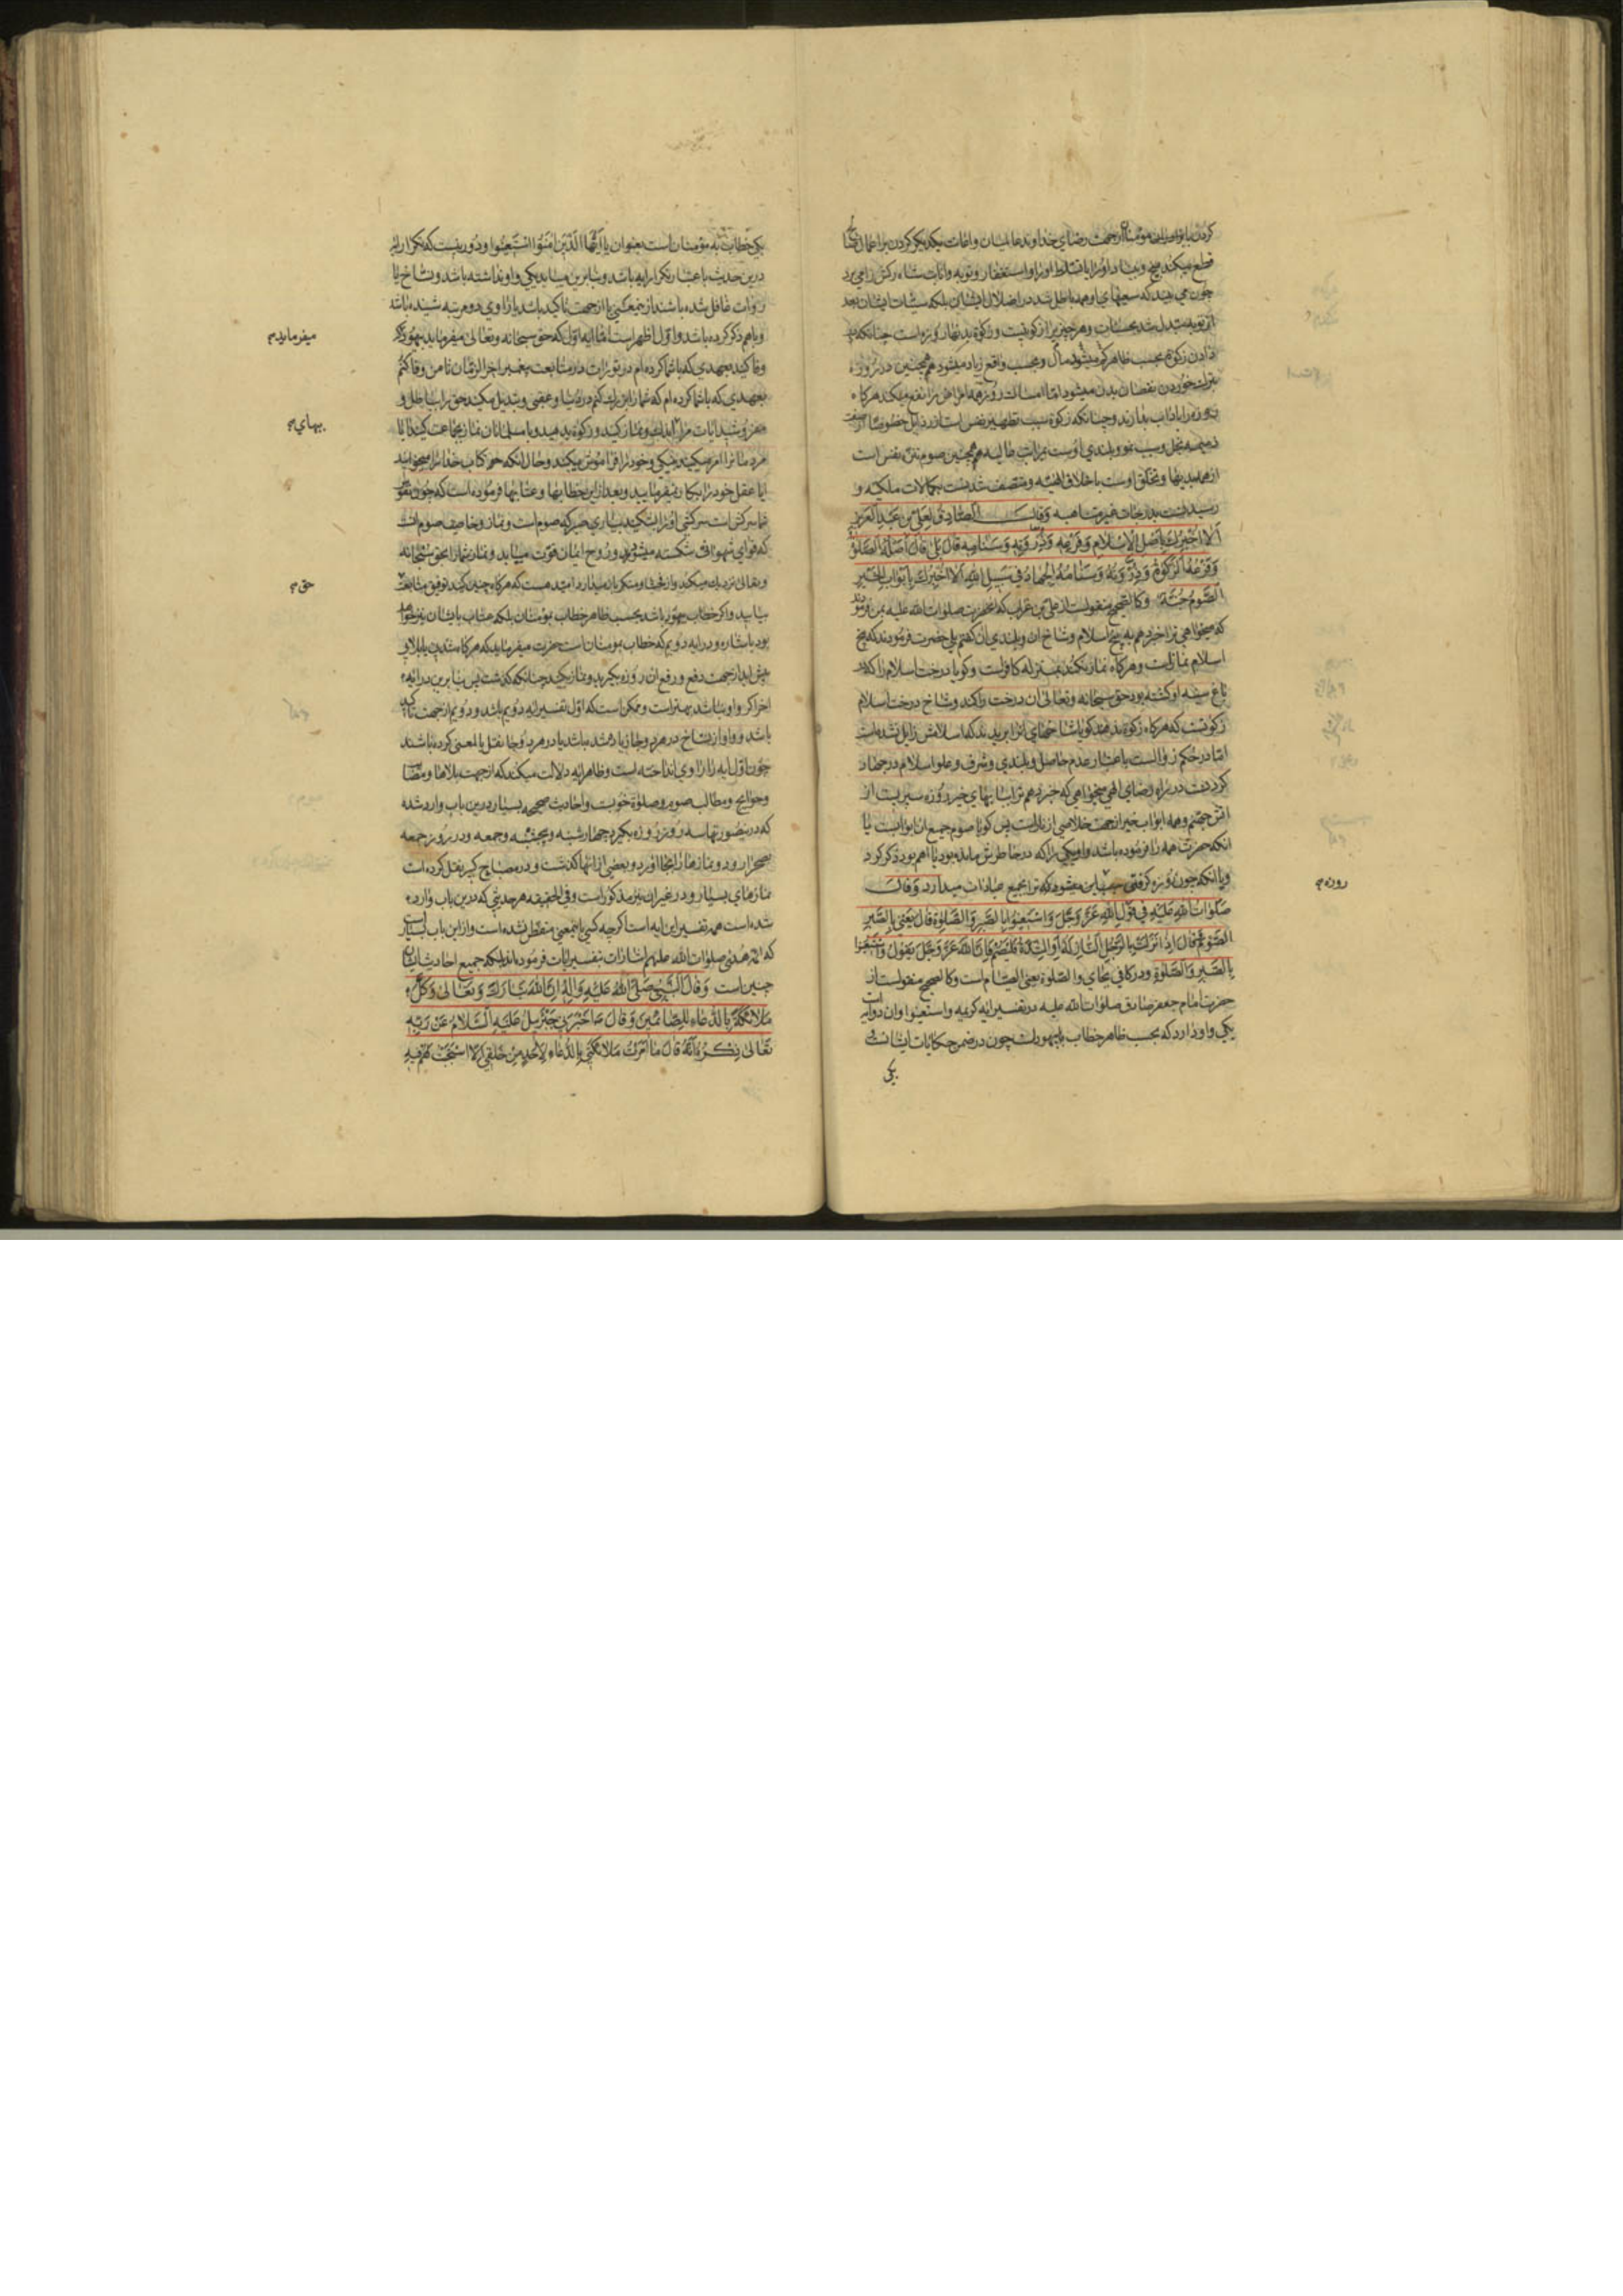 کردن یا بواسطه مؤمنان از جهت رضای خداوند عالمیان واعانت یکدیکر کردن بر اعمال صالح
قطع میکند بیخ و بنیاد او را یا تسلط او را و استغفار و توبه و انابت شاه رکش را می برد
چون می بیند که سعیهای او همه باطل شد در اضلال ایشان بلکه سیئات ایشان بعد
از توبه مبدل شد بحسنات و هر چیزیرا زکوتیست و زکوة بدنها روزه است چنانکه
دادن زکوة بحسب ظاهر کم میشود مال و بحسب واقع زیاد میشود همچنین در روزه
بترک خوردن نقصان بدن میشود اما امساک روزه همه امراض را نفع میکند هرگاه
روزه را باداب بدارند و چنانکه زکوة سبب تطهیر نفس است از رذایل خصوصا از صفت
ذمیمه بخل و سبب نمو و بلندی اوست بمراتب عالیه همچنین صوم تزکیه نفس است
از همه بدیها و تخلق اوست باخلاق الهیه و متصف شدنست بکمالات ملکیه و
رسیدنست بدرجات غیر متناهیه وقال الصادق لعلی بن عبد العزیز
الا اخبرک باصل الاسلام وفرعه وذروته وسنامه قال بلی قال اصله الصلوة
وفرعه الزکوة وذروته وسنامه الجهاد فی سبیل الله الا اخبرک بابواب الخیر
الصوم جنة وکالصحیح منقولست از علی بن عبد العزیز که حضرت صلوات الله علیه بمن فرمودند
که میخواهی ترا خبر دهم به بیخ اسلام و شاخ ان و بلندی ان گفتم بلی حضرت فرمودند که بیخ
اسلام نماز است و هرگاه نماز نکند بمنزله کافر است و کویا درخت اسلام را که در
باغ سینه او کشته بود حق سبحانه و تعالی ان درخت را کند و شاخ درخت اسلام
زکوتست که هرگاه زکوة ندهند کویا شاخهای انرا بریدند که اسلامش زایل نشده است
اما در حکم زوالست باعتبار عدم حاصل و بلندی و شرف و علو اسلام در جهاد
کردنست در راه رضای الهی میخواهی که خبر دهم ترا بابهای خیر روزه سپریست از
اتش جهنم و همه ابواب خیر از جهت خلاصی از نار است پس کویا صوم جمیع ان ابوابست یا
انکه حضرت همه را فرموده باشد و راوی یکی را که در خاطرش مانده بود یا اهم بود ذکر کرد
و یا انکه چون روزه کرفتی سبب این میشود که ترا بجمیع عبادات میدارد وقال
صلوات الله علیه فی قول الله عز وجل واستعینوا بالصبر والصلوة قال یعنی بالصبر
الصوم قال اذا نزلت بالرجل النازلة او الشدة فلیصم فان الله عز وجل یقول واستعینوا
بالصبر والصلوة ودر کافی بجای والصلوة یعنی الصیام است وکالصحیح منقولست از
حضرت امام جعفر صادق صلوات الله علیه در تفسیر ایه کریمه واستعینوا وان دو ایه است
یکی واو دارد که بحسب ظاهر خطاب با یهودست چون در ضمن حکایات ایشانست و
یکی
روزه
یکی خطاب به مؤمنان است بعنوان یا ایها الذین امنوا استعینوا و دور نیست که تکرار ایه
درین حدیث باعتبار تکرار ایه باشد و بنابرین میباید یکی واو نداشته باشد و نساخ یا
روات غافل شده باشند از جمع کلینی یا از جهت تاکید باشد یا راوی دو مرتبه شنیده باشد
و با هم ذکر کرده باشد و اول اظهر است اما ایه اول که حق سبحانه و تعالی میفرماید بیهود که
وفا کنید بعهدی که با شما کرده ام در تورات در متابعت پیغمبر اخر الزمان تا من وفا کنم
بعهدی که با شما کرده ام که شما را بزرگ کنم در دنیا و عقبی و تبدیل مکنید حق را بباطل و
مفروشید ایات مرا و نماز کنید و زکوة بدهید و با مسلمانان نماز بجماعت کنید ایا
مردمانرا امر میکنید بنیکی و خود را فراموش میکنید و حال انکه خود کتاب خدا را میخوانید
ایا عقل خود را بکار نمیفرمایید و بعد از این خطابها و عتابها فرموده است که چون نفوس
شما سرکش است سرکشی او را بشکنید بیاری صبر که صوم است و نماز و خاصیت صوم انست
که قوای شهوانی شکسته میشود و روح ایمان قوت مییابد و نماز شما را بحق سبحانه
و تعالی نزدیک میکند و از فحشا و منکر باز میدارد امید هست که هرگاه چنین کنید توفیق متابعت
بیابید و اگر خطاب بیهود باشد بحسب ظاهر خطاب مؤمنان بلکه عتاب با ایشان نیز خواهد
بود باشاره و در ایه دویم که خطاب بمومنان است حضرت میفرماید که هرگاه شدتی یا بلایی
پیش اید از جهت دفع و رفع ان روزه بگیرید و نماز بکنید چنانکه گذشت پس بنابرین در ایه
اخر اکر واو نباشد بهتر است و ممکن است که اول تفسیر ایه دویم باشد و دویم از جهت تاکید
باشد و واو از نساخ در هر دو جا زیاد شده باشد یا در هر دو جا نقل بالمعنی کرده باشند
چون اول ایه را راوی انداخته است و ظاهر ایه دلالت میکند که از جهت بلاها و مصایب
و حوایج و مطالب صوم و صلوة خوبست و احادیث صحیحه بسیار درین باب وارد شده
که در ینصورتها سه روز روزه بگیرد چهارشنبه و پنجشنبه و جمعه و در روز جمعه
بصحرا رود و نمازها را بجا اورد و بعضی از انها کذشت و در مصباح کبیر نقل کرده است
نمازهای بسیار و در غیر ان نیز مذکور است و فی الحقیقه هر حدیثی که درین باب وارد
شده است همه تفسیر این ایه است اکرچه کسی باینمعنی متفطن نشده است و از این باب بسیار است
که ائمه هدی صلوات الله علیهم اشارات بتفسیر ایات فرموده اند بلکه جمیع احادیث ایشان
چنین است وقال النبی صلی الله علیه واله ان الله تبارک وتعالی وکل
ملائکة بالدعاء للصائمین وقال اخبرنی جبرئیل علیه السلام عن ربه
تعالی ذکره انه قال ما امرت ملائکتی بالدعاء لاحد من خلقی الا استجبت لهم فیه
میفرماید
بهای
حق